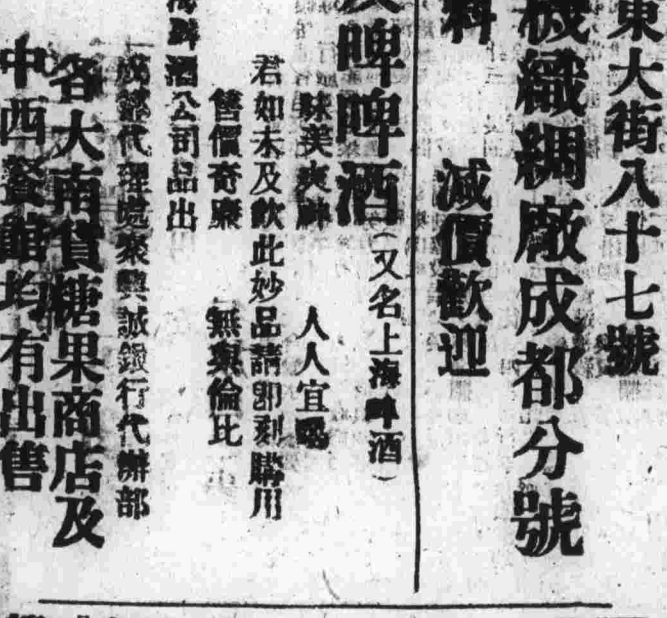 東大街八十七號
機織綢廠成都分號
料　減價歡迎
啤啤酒（又名上海啤酒）
味美爽　人人宜
君如未及飲此妙品請即刻購用
售價奇廉　無與倫比
酒公司品出
成都代理處聚興誠銀行代辦部
各大南貨糖果商店及
中西餐館均有出售